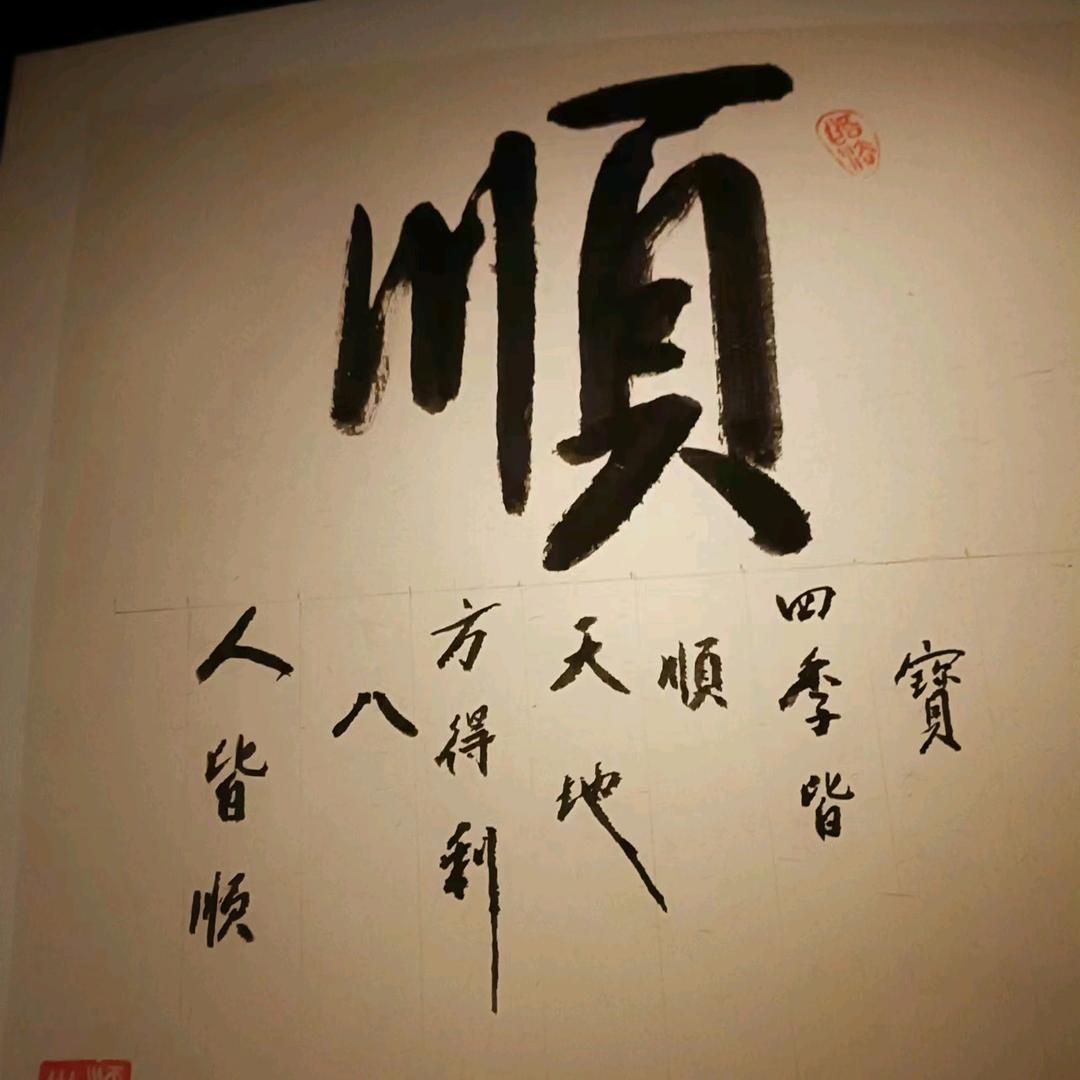 順
寶
四季皆
順
天地
方得利
八
人皆順